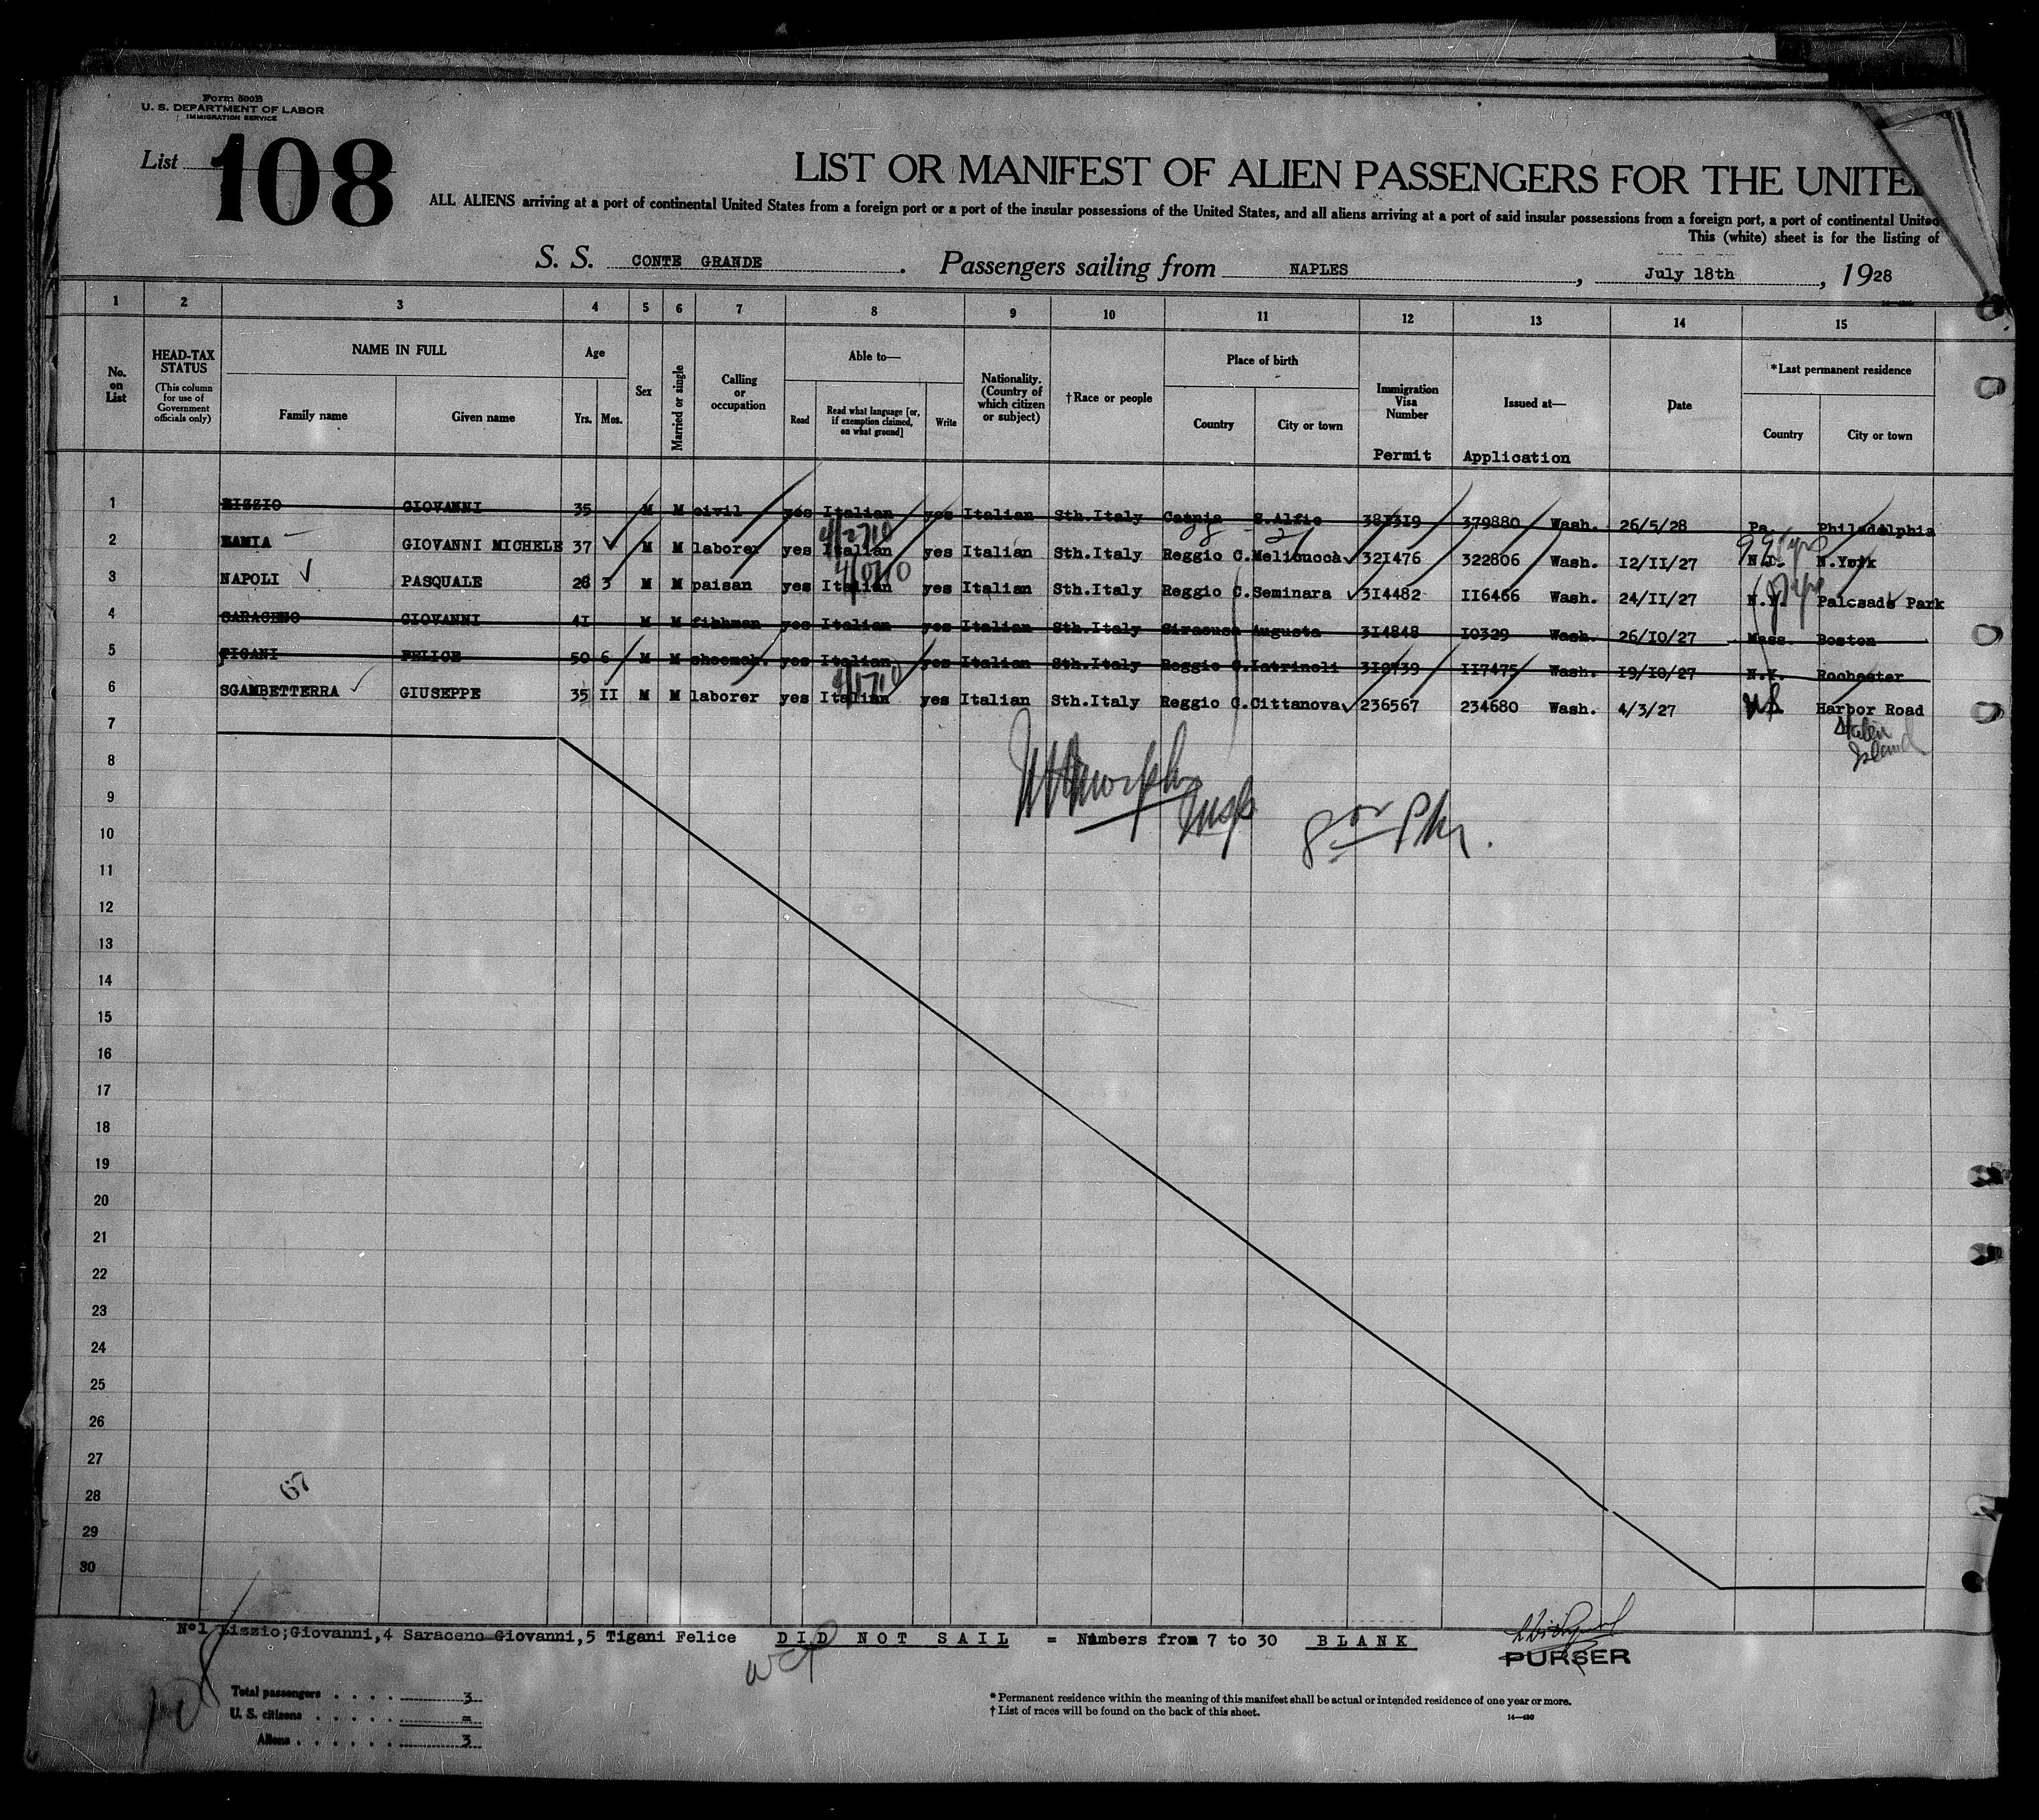 Form 500B
U. S. DEPARTMENT OF LABOR
IMMIGRATION SERVICE
List 108
LIST OR MANIFEST OF ALIEN PASSENGERS FOR THE UNITE
ALL ALIENS arriving at a port of continental United States from a foreign port or a port of the insular possessions of the United States, and all aliens arriving at a port of said insular possessions from a foreign port, a port of continental United
This (white) sheet is for the listing of
S. S. CONTE GRANDE. Passengers sailing from NAPLES, July 18th, 1928
1 2 3 4 5 6 7 8 9 10 11 12 13 14 15
No. on List
HEAD-TAX STATUS
(This column for use of Government officials only)
NAME IN FULL
Family name Given name
Age
Yrs. Mos.
Sex
Married or single
Calling or occupation
Able to—
Read Read what language [or, if exemption claimed, on what ground] Write
Nationality. (Country of which citizen or subject)
†Race or people
Place of birth
Country City or town
Immigration Visa Number
Permit
Issued at—
Application
Date
*Last permanent residence
Country City or town
1 GIOVANNI 35 M M civil yes Italian yes Italian Sth.Italy S.Alfio 379880 Wash. 26/5/28 Pa. Philadelphia
2 GIOVANNI MICHELE 37 M M laborer yes Italian yes Italian Sth.Italy Reggio C. 321476 322806 Wash. 12/11/27 N.York
3 NAPOLI PASQUALE 3 M M paisan yes Italian yes Italian Sth.Italy Reggio C. Seminara 314482 116466 Wash. 24/11/27 N. Park
4 SARACENO GIOVANNI 41 M M yes Italian yes Italian Sth.Italy Siracusa Augusta 314848 10329 Wash. 26/10/27 Mass. Boston
5 TIGANI FELICE 50 6 M M shoemak. yes Italian yes Italian Sth.Italy Reggio C. Iatrinoli 117475 Wash. 19/10/27 N.Y. Rochester
6 SGAMBETTERRA GIUSEPPE 35 11 M M laborer yes Italian yes Italian Sth.Italy Reggio C. Cittanova 236567 234680 Wash. 4/3/27 Harbor Road
Staten
Island
7
8
9
10
11
12
13
14
15
16
17
18
19
20
21
22
23
24
25
26
27
28
29
30
67
No1 Lizzio;Giovanni,4 Saraceno Giovanni,5 Tigani Felice DID NOT SAIL = Numbers from 7 to 30 BLANK
PURSER
Total passengers . . . . 3
U. S. citizens . . . . . =
Aliens . . . . . . 3
* Permanent residence within the meaning of this manifest shall be actual or intended residence of one year or more.
† List of races will be found on the back of this sheet.
14—430